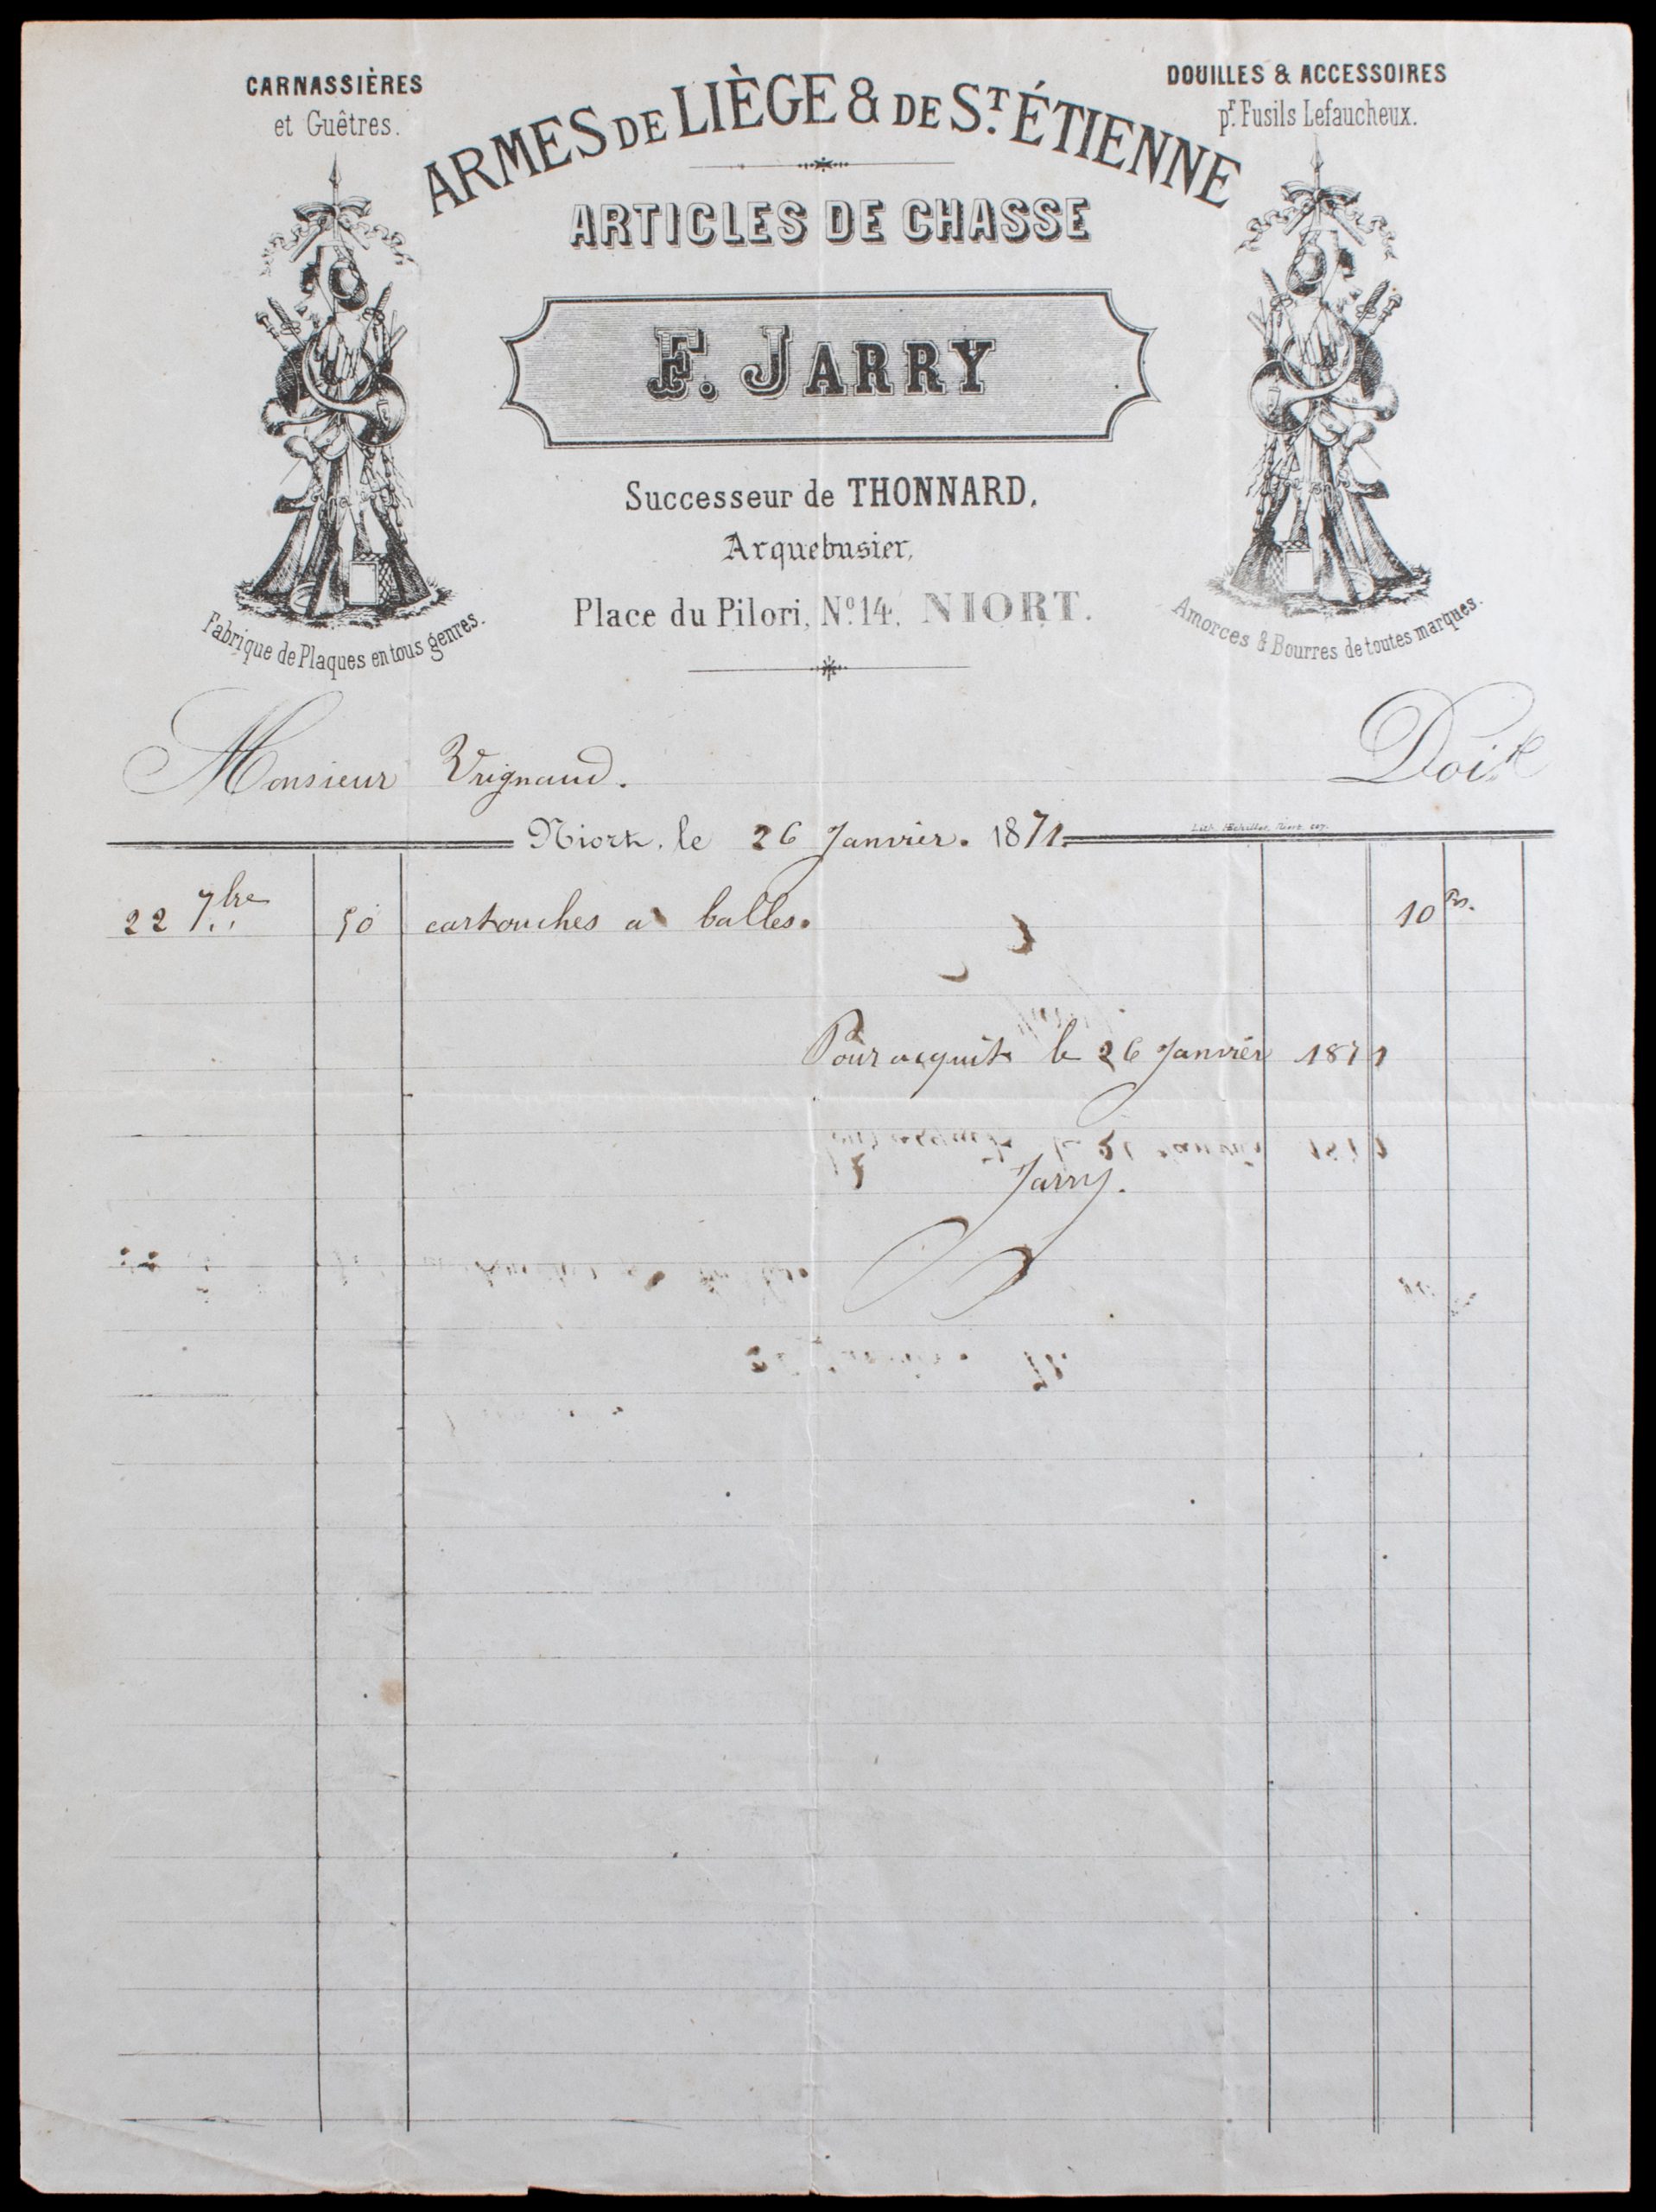 CARNASSIÈRES
et Guêtres.
DOUILLES & ACCESSOIRES
pr. Fusils Lefaucheux.
ARMES DE LIÈGE & DE ST. ÉTIENNE
ARTICLES DE CHASSE
F. JARRY
Successeur de THONNARD,
Arquebusier,
Place du Pilori, No. 14. NIORT.
Fabrique de Plaques en tous genres.
Amorces & Bourres de toutes marques.
Monsieur Vrignaud. Doit
Niort, le 26 Janvier. 1871.
22 7bre 50 cartouches a balles. 10
Pour acquit le 26 Janvier 1871
Jarry.